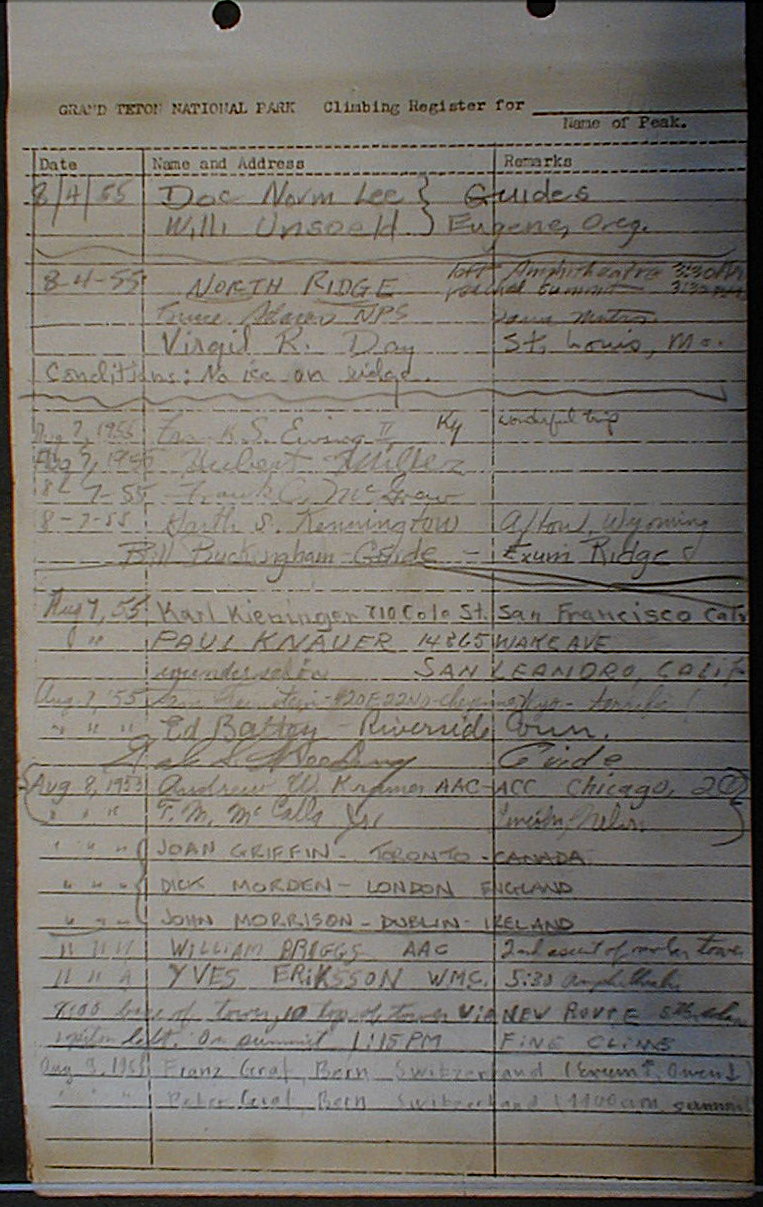 GRAND TETON NATIONAL PARK Climbing Register for
Name of Peak.
Date Name and Address Remarks
8/4/55 Doc Norm Lee } Guides
Willi Unsoeld } Eugene, Oreg.
8-4-55 NORTH RIDGE left Amphitheatre 3:30 AM
reached summit
NPS
Virgil R. Day St. Louis, Mo.
Conditions: No ice on ridge.
Aug 7, 1955 K.S. Ewing II Ky wonderful trip
Aug 7, 1955 Hubert Miller
8-7-55 Frank C. McGrew
8-7-55 Garth S. Kennington Afton, Wyoming
Bill Buckingham - Guide - Exum Ridge
Aug 7, 55 Karl Kieninger 710 Cole St. San Francisco
" " PAUL KNAUER 14865 WAKE AVE
wunderschön SAN LEANDRO, CALIF
Aug 7, '55 terrific!
" " " Ed Battey - Riverside Conn.
Guide
Aug 8, 1955 Andrew W. Kramer AAC-ACC Chicago, 20
" " " T. M. McCalla Jr. Lincoln, Nebr.
" " " JOAN GRIFFIN - TORONTO - CANADA
" " " DICK MORDEN - LONDON ENGLAND
" " " JOHN MORRISON - DUBLIN - IRELAND
" " " WILLIAM BRIGGS AAC 2nd ascent of tower
" " " YVES ERIKSSON WMC. 5:30
base of tower, 10 top of tower VIA NEW ROUTE
1 piton left. On summit 1:15 PM FINE CLIMB
Aug 9, 1955 Franz Graf, Born Switzerland (Exum ↑, Owen ↓)
" " " Peter Graf, Born Switzerland (11 00 am summit